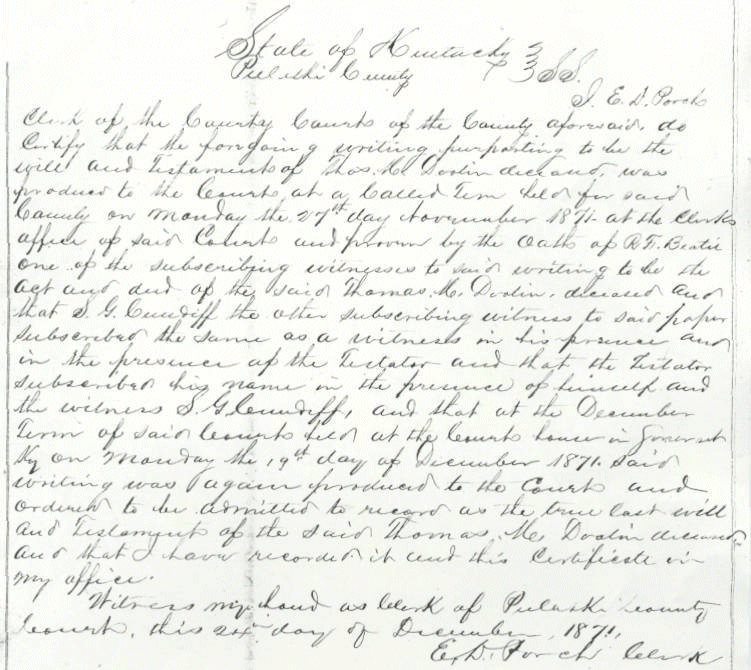 State of Kentucky
Pulaski County } SS.
I. E. D. Porch
Clerk of the County Courts of the County aforesaid, do
Certify that the foregoing writing purporting to be the
will and Testament of Thos. M. Doolin deceased, was
produced to the Courts at a Called Term held for said
County on Monday the 27th day November 1871. at the Clerks
office of said Courts and proven by the Oath of
one of the subscribing witnesses to said writing to be the
act and deed of the said Thomas. M. Doolin, deceased and
that S. G. Cundiff the other subscribing witness to said paper
subscribed the same as a witness in his presence and
in the presence of the Testator and that the Testator
subscribed his name in the presence of himself and
the witness S. G. Cundiff, and that at the December
Term of said Courts held at the Courts house in Somerset
Ky on Monday the 19th day of December 1871. said
writing was again produced to the Courts and
ordered to be admitted to record as the true last will
and Testament of the said Thomas. M. Doolin deceased,
and that I have recorded it and this Certificate in
my office.
Witness my hand as Clerk of Pulaski County
Courts, this 24th day of December, 1871,
E. D. Porch Clerk